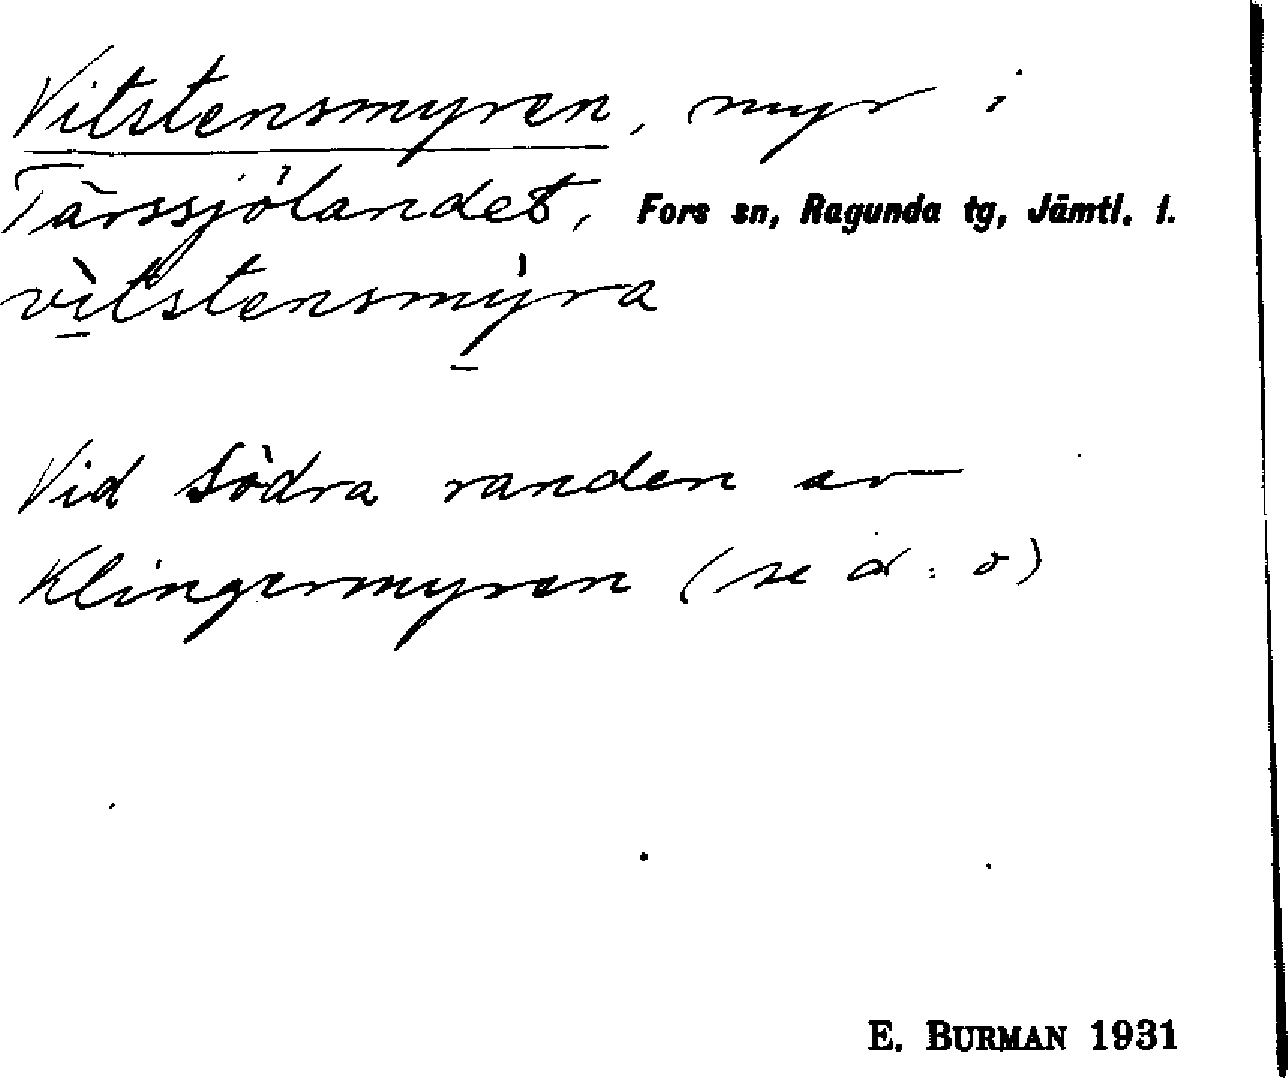 Vitstensmyren, myr i
Tärssjölandet, Fors sn, Ragunda tg, Jämtl. l.
vìtstensmýra
Vid södra randen av
Klingermyren (se d:o)
E. BURMAN 1931